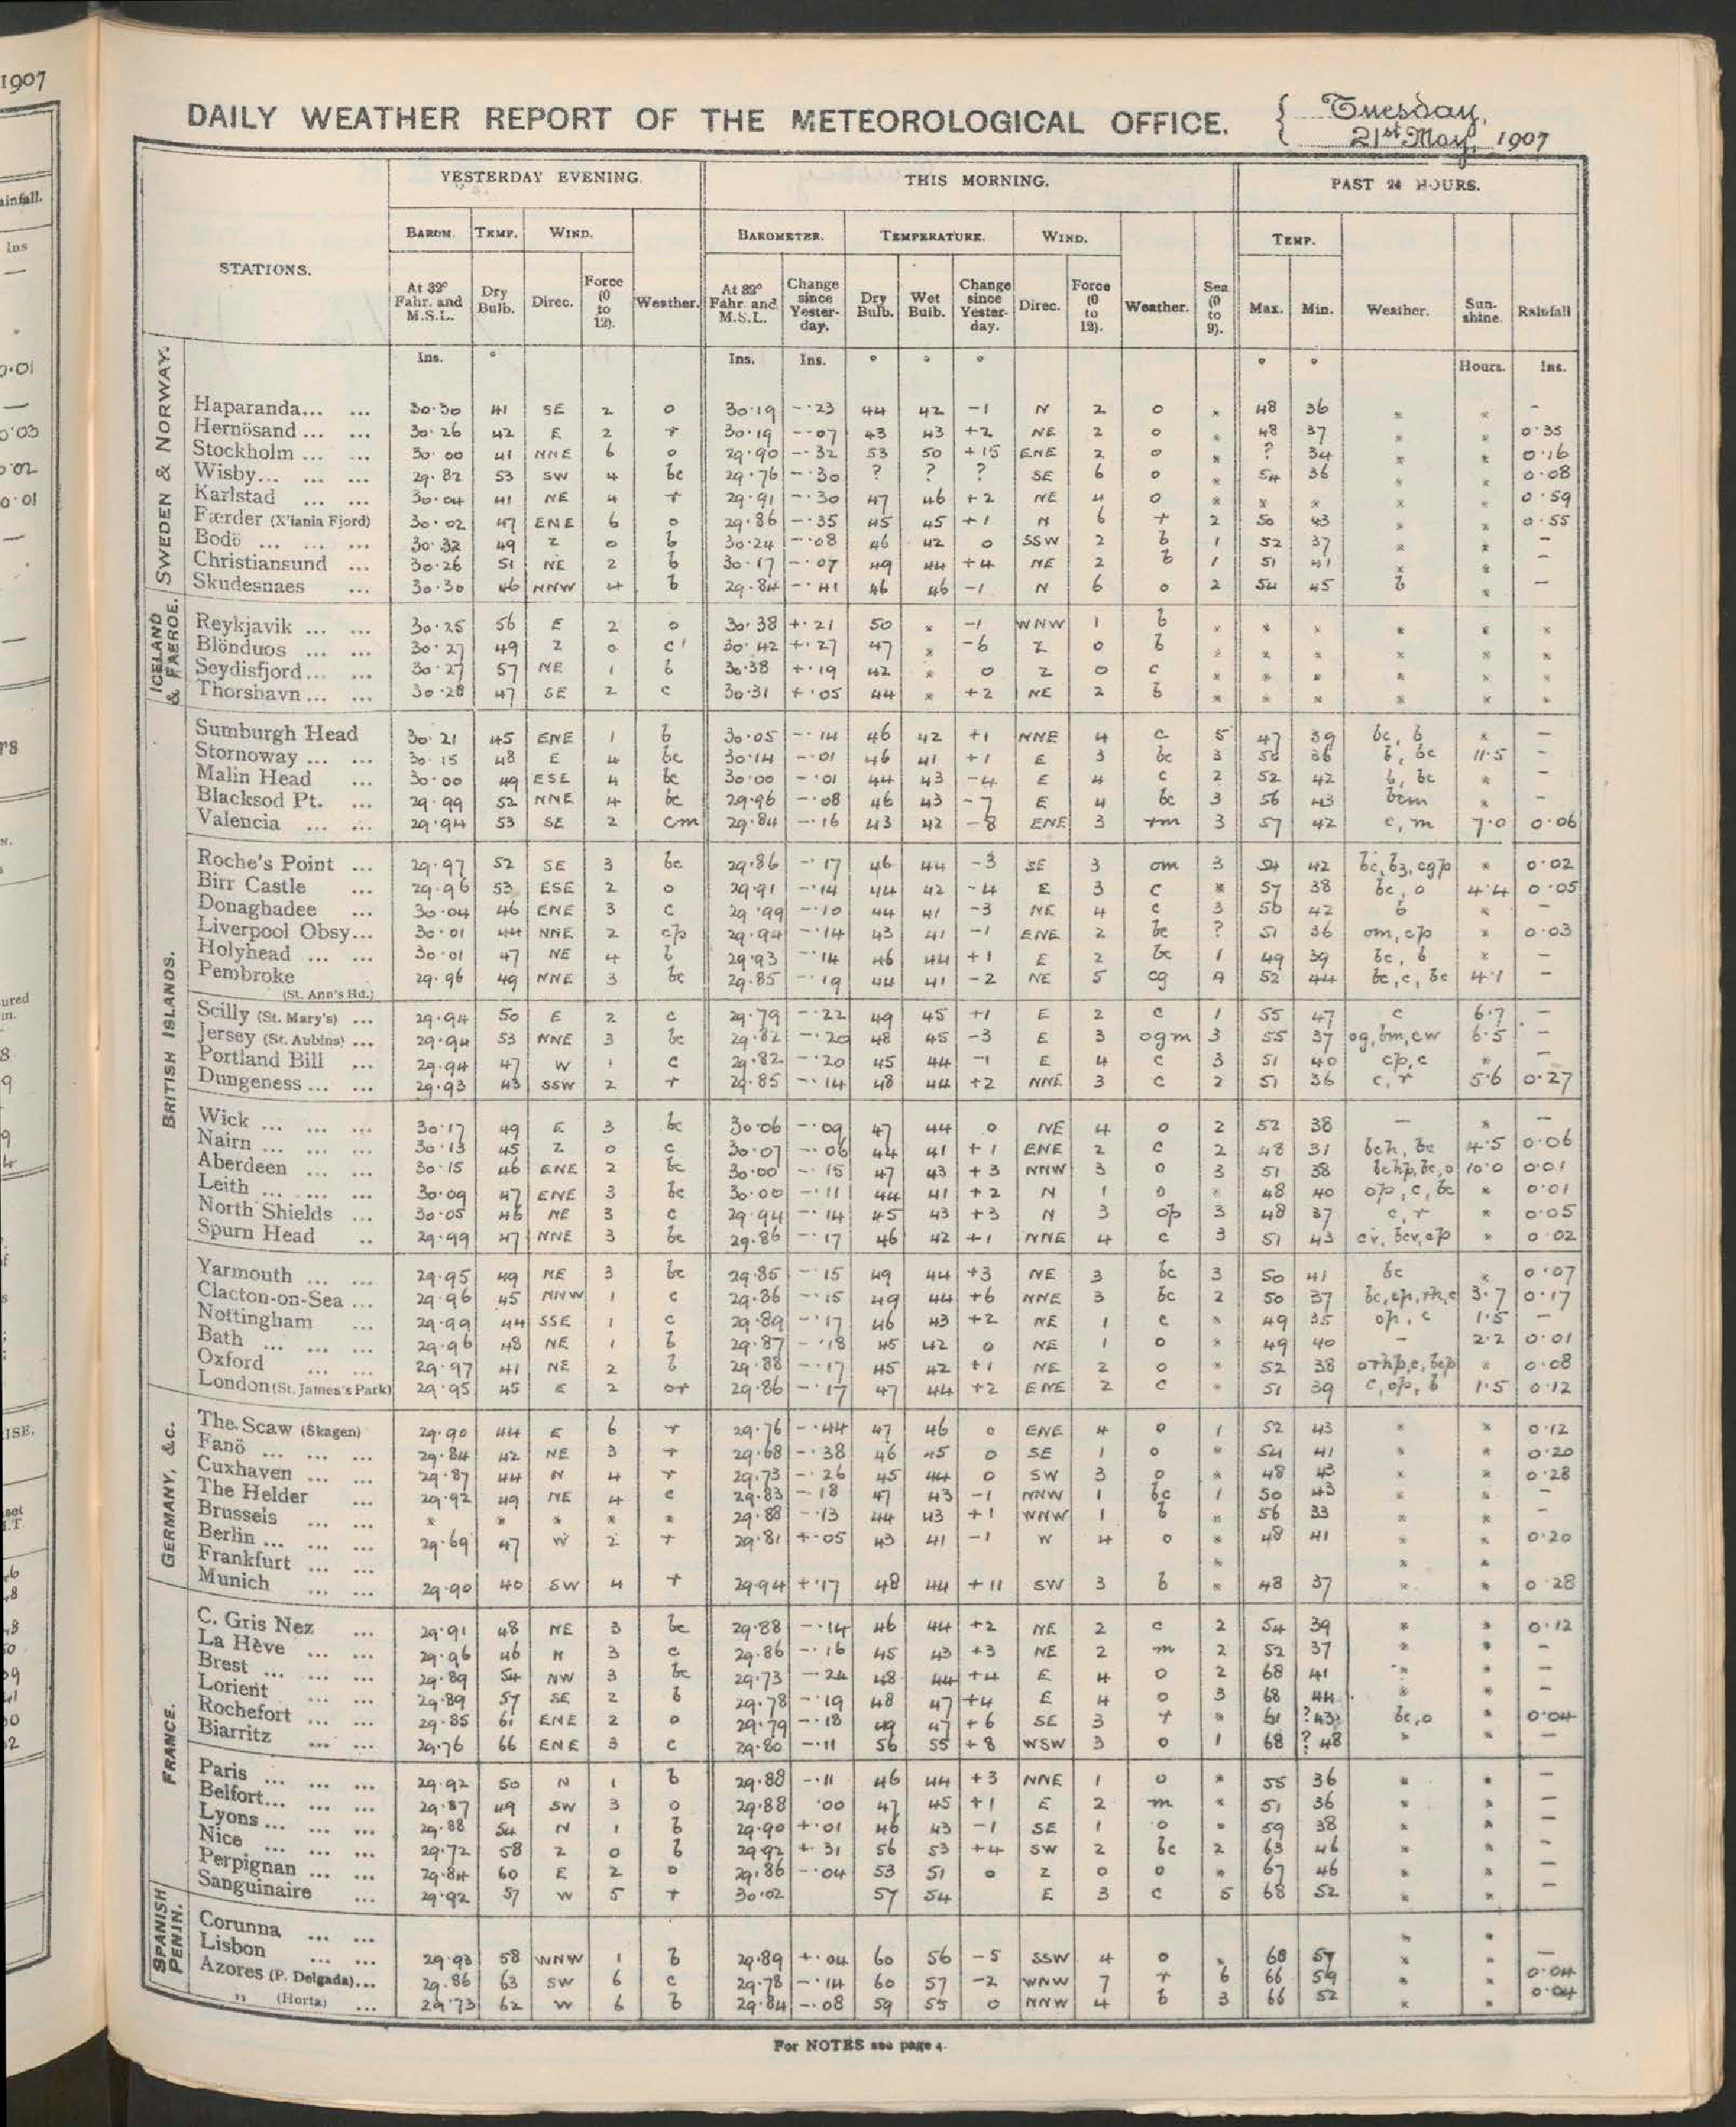 1907
DAILY WEATHER REPORT OF THE METEOROLOGICAL OFFICE.
Tuesday,
21st May, 1907
YESTERDAY EVENING. THIS MORNING. PAST 24 HOURS.
BAROM. TEMP. WIND. BAROMETER. TEMPERATURE. WIND. TEMP.
STATIONS. At 32° Fahr. and M.S.L. Dry Bulb. Direc. Force (0 to 12). Weather. At 32° Fahr. and M.S.L. Change since Yesterday. Dry Bulb. Wet Bulb. Change since Yesterday. Direc. Force (0 to 12). Weather. Sea (0 to 9). Max. Min. Weather. Sunshine. Rainfall
Ins. ° Ins. Ins. ° ° ° ° ° Hours. Ins.
SWEDEN & NORWAY.
Haparanda... ... 30·30 41 SE 2 o 30·19 -·23 44 42 -1 N 2 o * 48 36 * * -
Hernösand ... ... 30·26 42 E 2 r 30·19 -·07 43 43 +2 NE 2 o * 48 37 * * 0·35
Stockholm ... ... 30·00 41 NNE 6 o 29·90 -·32 53 50 +15 ENE 2 o * ? 34 * * 0·16
Wisby... ... ... 29·82 53 SW 4 bc 29·76 -·30 ? ? ? SE 6 o * 54 36 * * 0·08
Karlstad ... ... 30·04 41 NE 4 r 29·91 -·30 47 46 +2 NE 4 o * * * * * 0·59
Færder (X'iania Fjord) 30·02 47 ENE 6 o 29·86 -·35 45 45 +1 N 6 r 2 50 43 * * 0·55
Bodö ... ... ... 30·32 49 Z 0 b 30·24 -·08 46 42 0 SSW 2 b 1 52 37 * * -
Christiansund ... 30·26 51 NE 2 b 30·17 -·07 49 44 +4 NE 2 b 1 51 41 * * -
Skudesnaes ... 30·30 46 NNW 4 b 29·84 -·41 46 46 -1 N 6 o 2 54 45 b * -
ICELAND & FAEROE.
Reykjavik ... ... 30·25 56 E 2 o 30·38 +·21 50 * -1 WNW 1 b * * * * * *
Blönduos ... ... 30·27 49 Z 0 c 30·42 +·27 47 * -6 Z 0 b * * * * * *
Seydisfjord... ... 30·27 57 NE 1 b 30·38 +·19 42 * 0 Z 0 c * * * * * *
Thorshavn ... ... 30·28 47 SE 2 c 30·31 +·05 44 * +2 NE 2 b * * * * * *
BRITISH ISLANDS.
Sumburgh Head 30·21 45 ENE 1 b 30·05 -·14 46 42 +1 NNE 4 c 5 47 39 bc, b * -
Stornoway ... ... 30·15 48 E 4 bc 30·14 -·01 46 41 +1 E 3 bc 3 56 36 b, bc 11·5 -
Malin Head ... 30·00 49 ESE 4 bc 30·00 -·01 44 43 -4 E 4 c 2 52 42 b, bc * -
Blacksod Pt. ... 29·99 52 NNE 4 bc 29·96 -·08 46 43 -7 E 4 bc 3 56 43 bcm * -
Valencia ... ... 29·94 53 SE 2 cm 29·84 -·16 43 42 -8 ENE 3 rm 3 57 42 c, m 7·0 0·06
Roche's Point ... 29·97 52 SE 3 bc 29·86 -·17 46 44 -3 SE 3 om 3 54 42 bc, bz, cgp * 0·02
Birr Castle ... 29·96 53 ESE 2 o 29·91 -·14 44 42 -4 E 3 c * 57 38 bc, o 4·4 0·05
Donaghadee ... 30·04 46 ENE 3 c 29·99 -·10 44 41 -3 NE 4 c 3 56 42 b * -
Liverpool Obsy... 30·01 44 NNE 2 c/p 29·94 -·14 43 41 -1 ENE 2 bc ? 51 36 om, c/p * 0·03
Holyhead ... ... 30·01 47 NE 4 b 29·93 -·14 46 44 +1 E 2 bc 1 49 39 bc, b * -
Pembroke (St. Ann's Hd.) 29·96 49 NNE 3 bc 29·85 -·19 44 41 -2 NE 5 cg 4 52 44 bc, c, bc 4·1 -
Scilly (St. Mary's) ... 29·94 50 E 2 c 29·79 -·22 49 45 +1 E 2 c 1 55 47 c 6·7 -
Jersey (St. Aubins) ... 29·94 53 NNE 3 bc 29·82 -·20 48 45 -3 E 3 ogm 3 55 37 og, bm, cw 6·5 -
Portland Bill ... 29·94 47 W 1 c 29·82 -·20 45 44 -1 E 4 c 3 51 40 cp, c * -
Dungeness ... ... 29·93 43 SSW 2 r 29·85 -·14 48 44 +2 NNE 3 c 2 51 36 c, r 5·6 0·27
Wick ... ... ... 30·17 49 E 3 bc 30·06 -·09 47 44 0 NE 4 o 2 52 38 — * -
Nairn ... ... ... 30·13 45 Z 0 c 30·07 -·06 44 41 +1 ENE 2 c 2 48 31 bch, bc 4·5 0·06
Aberdeen ... ... 30·15 46 ENE 2 bc 30·00 -·15 47 43 +3 NNW 3 o 3 51 38 bchp, bc, o 10·0 0·01
Leith ... ... ... 30·09 47 ENE 3 bc 30·00 -·11 44 41 +2 N 1 o * 48 40 op, c, bc * 0·01
North Shields ... 30·05 46 NE 3 c 29·94 -·14 45 43 +3 N 3 op 3 48 37 c, r * 0·05
Spurn Head .. 29·99 47 NNE 3 bc 29·86 -·17 46 42 +1 NNE 4 c 3 51 43 cv, bcv, c/p * 0·02
Yarmouth ... ... 29·95 49 NE 3 bc 29·85 -·15 49 44 +3 NE 3 bc 3 50 41 bc * 0·07
Clacton-on-Sea ... 29·96 45 NNW 1 c 29·86 -·15 49 44 +6 NNE 3 bc 2 50 37 bc, cp, rh, c 3·7 0·17
Nottingham ... 29·99 44 SSE 1 c 29·89 -·17 46 43 +2 NE 1 c * 49 35 op, c 1·5 -
Bath ... ... ... 29·96 48 NE 1 b 29·87 -·18 45 42 0 NE 1 o * 49 40 - 2·2 0·01
Oxford ... ... 29·97 41 NE 2 b 29·88 -·17 45 42 +1 NE 2 o * 52 38 orhp, c, bcp * 0·08
London (St. James's Park) 29·95 45 E 2 or 29·86 -·17 47 44 +2 ENE 2 c * 51 39 c, op, b 1·5 0·12
GERMANY, &c.
The Scaw (Skagen) 29·90 44 E 6 r 29·76 -·44 47 46 0 ENE 4 o 1 52 43 * * 0·12
Fanö ... ... ... 29·84 42 NE 3 r 29·68 -·38 46 45 0 SE 1 o * 54 41 * * 0·20
Cuxhaven ... ... 29·87 44 N 4 r 29·73 -·26 45 44 0 SW 3 o * 48 43 * * 0·28
The Helder ... 29·92 49 NE 4 c 29·83 -·18 47 43 -1 NNW 1 bc 1 50 43 * * -
Brussels ... ... * * * * * 29·88 -·13 44 43 +1 WNW 1 b * 56 33 * * -
Berlin ... ... ... 29·69 47 W 2 r 29·81 +·05 43 41 -1 W 4 o * 48 41 * * 0·20
Frankfurt ... ... * * *
Munich ... ... 29·90 40 SW 4 r 29·94 +·17 48 44 +11 SW 3 b * 48 37 * * 0·28
FRANCE.
C. Gris Nez ... 29·91 48 NE 3 bc 29·88 -·14 46 44 +2 NE 2 c 2 54 39 * * 0·12
La Hève ... ... 29·96 46 N 3 c 29·86 -·16 45 43 +3 NE 2 m 2 52 37 * * -
Brest ... ... ... 29·89 54 NW 3 bc 29·73 -·24 48 44 +4 E 4 o 2 68 41 * * -
Lorient ... ... 29·89 57 SE 2 b 29·78 -·19 48 47 +4 E 4 o 3 68 44 * * -
Rochefort ... ... 29·85 61 ENE 2 o 29·79 -·18 49 47 +6 SE 3 r * 61 ?43? bc, o * 0·04
Biarritz ... ... 29·76 66 ENE 3 c 29·80 -·11 56 55 +8 WSW 3 o 1 68 ?48 * * -
Paris ... ... ... 29·92 50 N 1 b 29·88 -·11 46 44 +3 NNE 1 o * 55 36 * * -
Belfort... ... ... 29·87 49 SW 3 o 29·88 ·00 47 45 +1 E 2 m * 51 36 * * -
Lyons ... ... ... 29·88 54 N 1 b 29·90 +·01 46 43 -1 SE 1 o * 59 38 * * -
Nice ... ... ... 29·72 58 Z 0 b 29·92 +·31 56 53 +4 SW 2 bc 2 63 46 * * -
Perpignan ... ... 29·84 60 E 2 o 29·86 -·04 53 51 0 Z 0 o * 67 46 * * -
Sanguinaire ... 29·92 57 W 5 r 30·02 57 54 E 3 c 5 68 52 * * -
SPANISH PENIN.
Corunna ... ... * *
Lisbon ... ... 29·93 58 WNW 1 b 29·89 +·04 60 56 -5 SSW 4 o * 68 57 * * -
Azores (P. Delgada)... 29·86 63 SW 6 c 29·78 -·14 60 57 -2 WNW 7 r 6 66 59 * * 0·04
" (Horta) ... 29·73 62 W 6 b 29·84 -·08 59 55 0 NNW 4 b 3 66 52 * * 0·04
For NOTES see page 4.